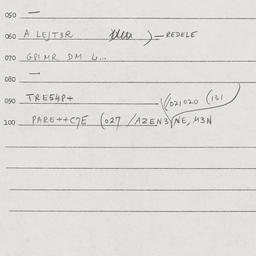 050 —
060 A LEJT3R ) — REDELE
070 GPIMR DM L...
080 —
090 TRES4P+ (021020 (121
100 PARE++C7E (027 /AZEN3 NE, M3N